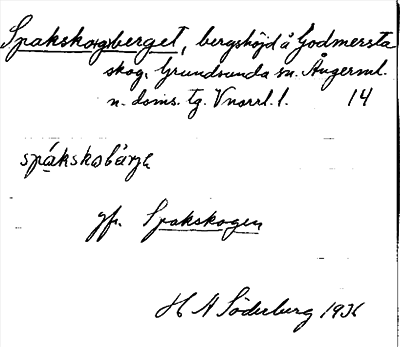 Spakskogsberget, bergshöjd å Godmersta
skog, Grundsunda sn. Ångerml.
n. doms. tg. Vnorrl. l. 14
spákskobärjε
jfr. Spakskogen
H A Söderberg 1936